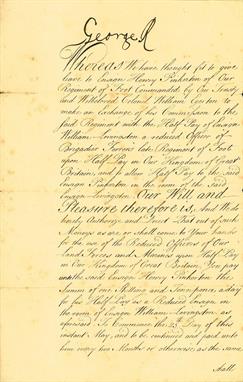 George R
Whereas We have thought fit to give
leave to Ensign Henry Pinkerton of Our
Regiment of Foot Commanded by Our Trusty
and Welbeloved Colonel William to
make an Exchange of his Commission to the
said Regiment with the Half Pay of Ensign
William Livingston a reduced Officer of
Brigadier late Regiment of Foot
upon Half Pay in Our Kingdom of Great
Britain, and to allow Half Pay to the Said
Ensign Pinkerton in the room of the Said
Ensign Livingston. Our Will and
Pleasure therefore is, And We do
hereby Authorize and Direct that out of such
Moneys as are or shall come to Your hands
for the use of the Reduced Officers of Our
Land Forces and Marines upon Half Pay
in Our Kingdom of Great Britain You pay
unto the said Ensign Henry Pinkerton the
Summ of one Shilling and Tenn pence a day
for his Half Pay as a Reduced Ensign in
the room of Ensign William Livingston as
aforesaid To Commence the 25th Day of this
instant May, and to be continued and paid unto
him every two Months or otherwise, as the same
shall